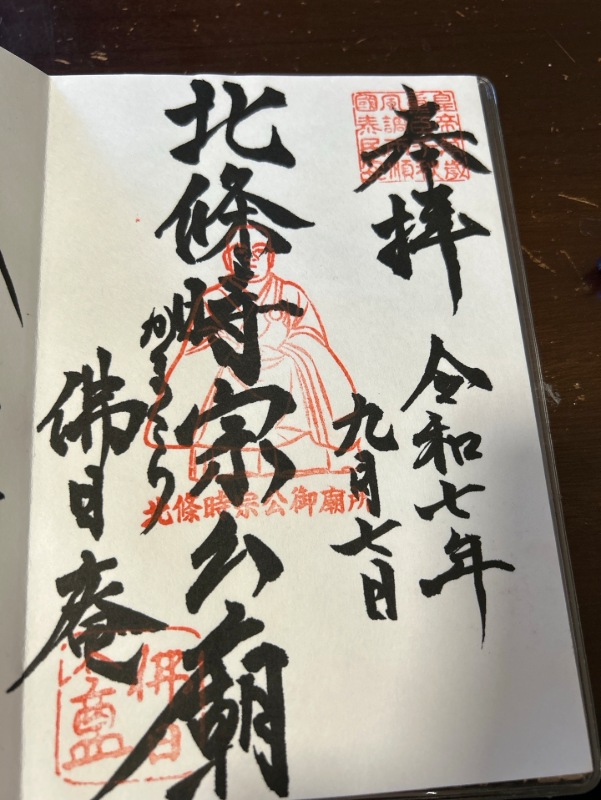 奉拝
皇帝萬歳
風調雨順
國泰民安
令和七年
九月七日
北條時宗公廟
北條時宗公御廟所
かまくら
佛日庵